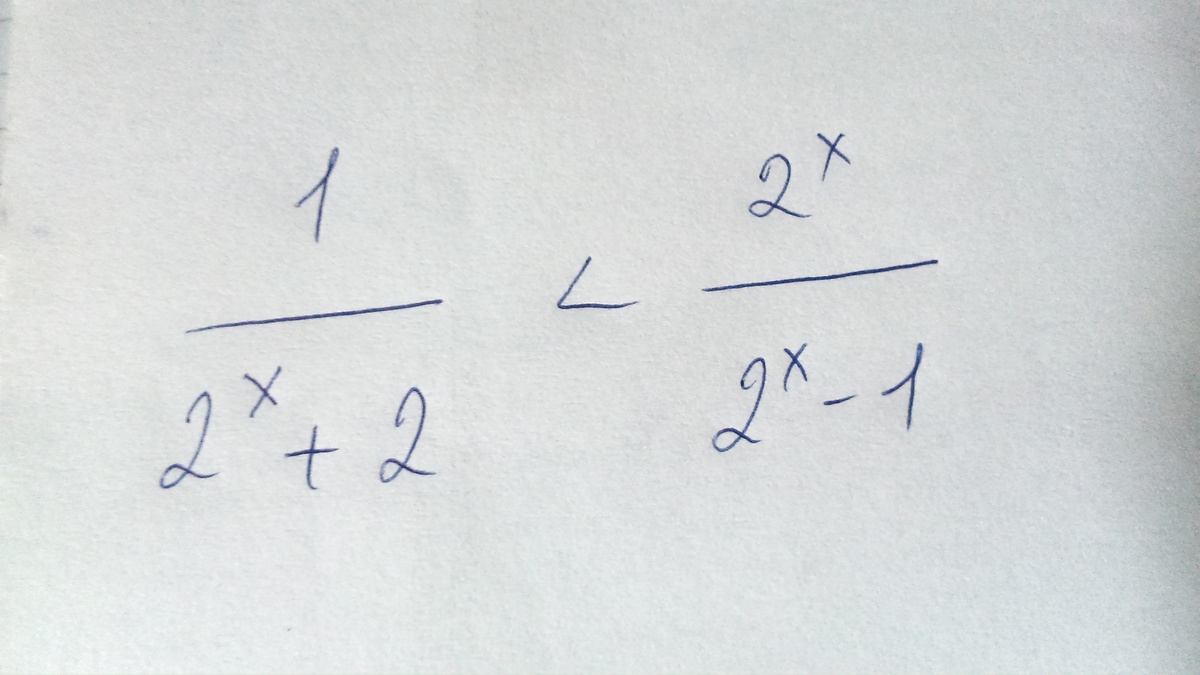 1/(2^x + 2) < 2^x/(2^x - 1)